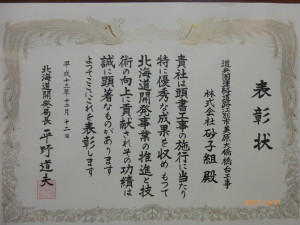 表彰状
道央圏連絡道路江別市美原大橋橋台工事
株式会社 砂子組 殿
貴社は頭書工事の施行に当たり
特に優秀な成果を収め もつて
北海道開発事業の推進と技
術の向上に貢献されその功績は
誠に顕著なものがあります
よつてここにこれを表彰します
平成十三年十二月十二日
北海道開発局長 平野道夫